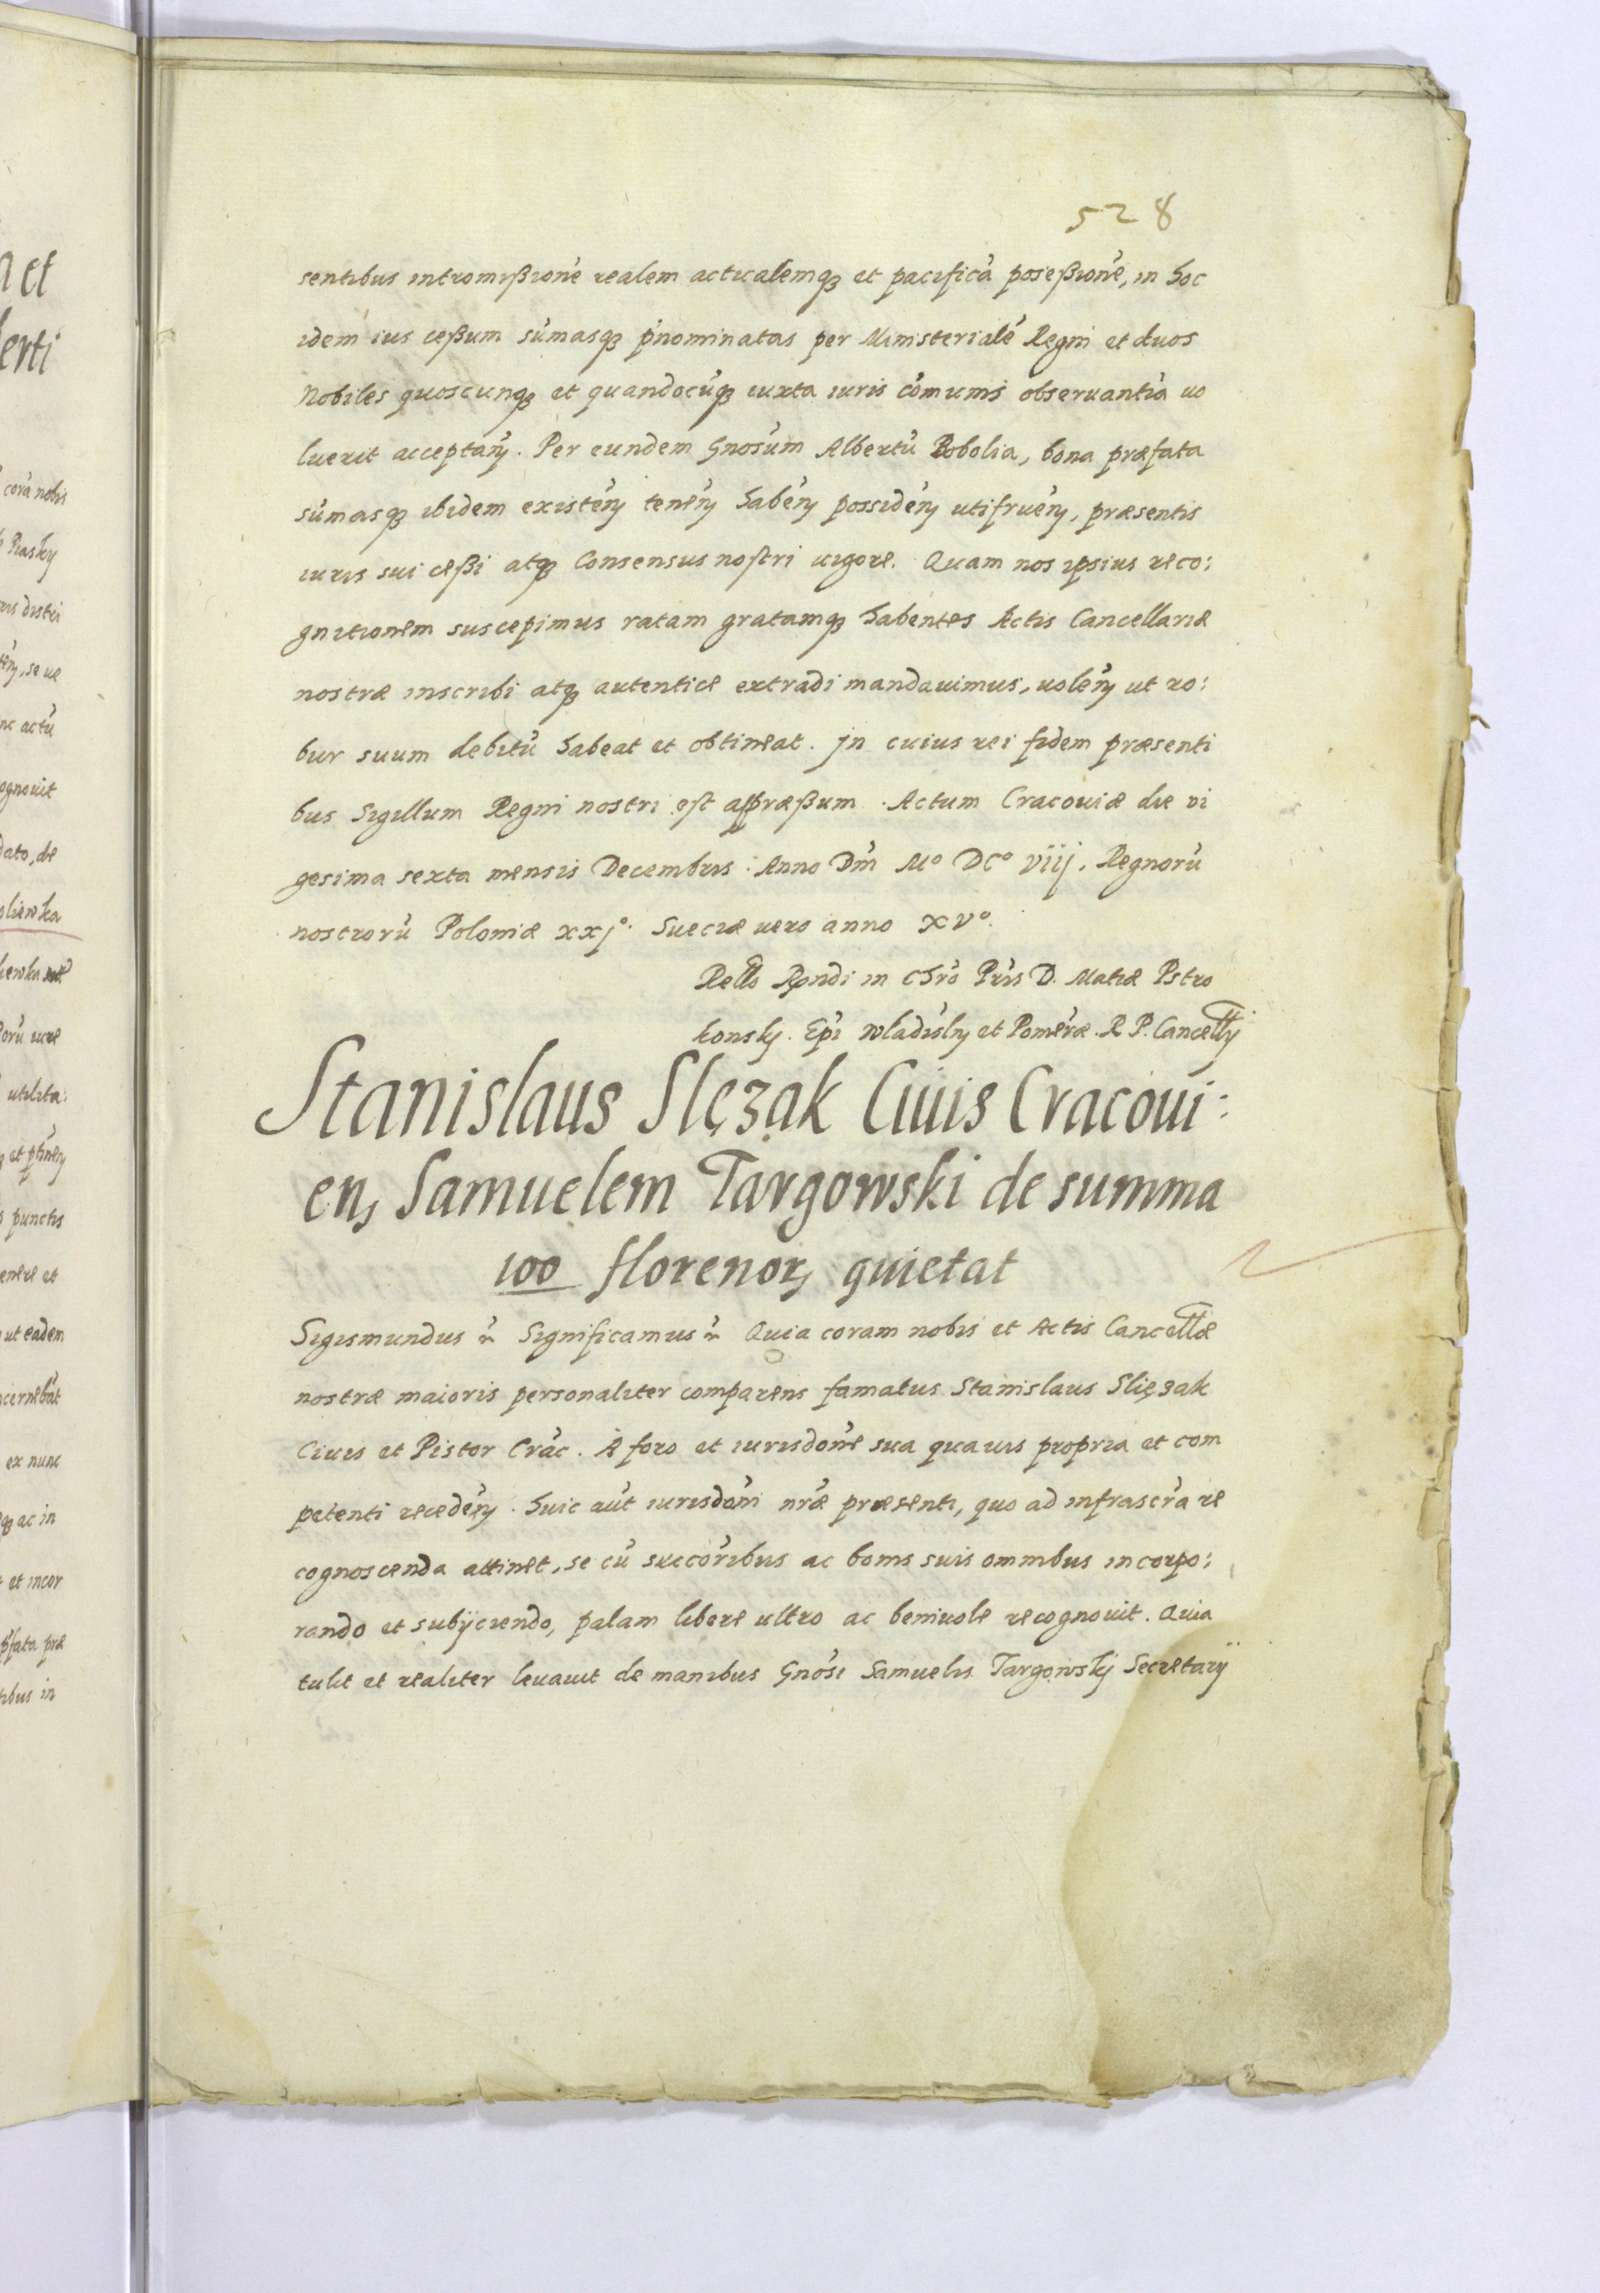 528
sentibus intromißionē realem actualemq̃ et pacificā poseßionē, in hoc
idem ius ceßum sūmasq̃ p̄nominatas per Ministerialē Regni et duos
Nobiles quoscunq̃ et quandocūq̃ iuxta iuris cōmunis obseruantiā uo
luerit acceptan̄. Per eundem Gnosūm Albertū Bobolia, bona præfata
sūmasq̃ ibidem existen̄ tenen̄ haben̄ possiden̄ utifruen̄, præsentis
iuris sui ceßi atq̃ Consensus nostri uigore. Quam nos ipsius reco:
gnitionem suscepimus ratam gratamq̃ habentes Actis Cancellariæ
nostræ inscribi atq̃ autentice extradi mandauimus, uolen̄ ut ro:
bur suum debitū habeat et obtineat. Jn cuius rei fidem præsenti
bus Sigillum Regni nostri est appræßum. Actum Cracouiæ die vi
gesima sexta mensis Decembris. Anno Dn̄i Mº DCº viij. Regnorū
nostrorū Poloniæ xxjº. Sueciæ uero anno xvº.
Rel̃lo R̃ndi in Chrō Pr̄is D. Matiæ Pstro
konskj. Ep̄i Wladisl̄n et Pomer̄æ. R P. Cancel̃lij
Stanislaus Slęzak Ciuis Cracoui:
en, Samuelem Targowski de summa
100 florenor, quietat
Sigismundus &c̄ Significamus &c̄ Quia coram nobis et Actis Cancel̃læ
nostræ maioris personaliter comparens famatus Stanislaus Slięzak
Ciuis et Pistor Crāc. A foro et iurisdonē sua quauis propria et com
petenti receden̄. huic aūt iurisdonī nr̄æ præsenti, quo ad infrascr̄a re
cognoscenda attinet, se cū succorībus ac bonis suis omnibus incorpo:
rando et subijciendo, palam libere ultro ac beniuole recognouit. Quia
tulit et realiter leuauit de manibus Gnōsi Samuelis Targowskij Secretarij